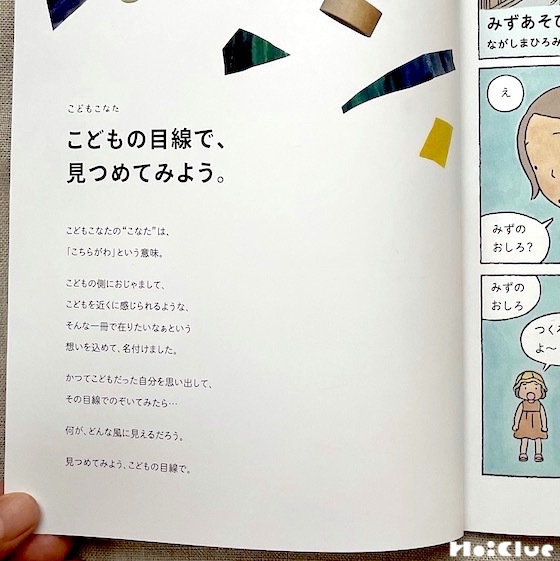 こどもこなた
こどもの目線で、
見つめてみよう。
こどもこなたの“こなた”は、
「こちらがわ」という意味。
こどもの側におじゃまして、
こどもを近くに感じられるような、
そんな一冊で在りたいなぁという
想いを込めて、名付けました。
かつてこどもだった自分を思い出して、
その目線でのぞいてみたら…
何が、どんな風に見えるだろう。
見つめてみよう、こどもの目線で。
みずあそび
ながしまひろみ
え
みずの
おしろ?
みずの
おしろ
つくろ
よ〜
HoiClue